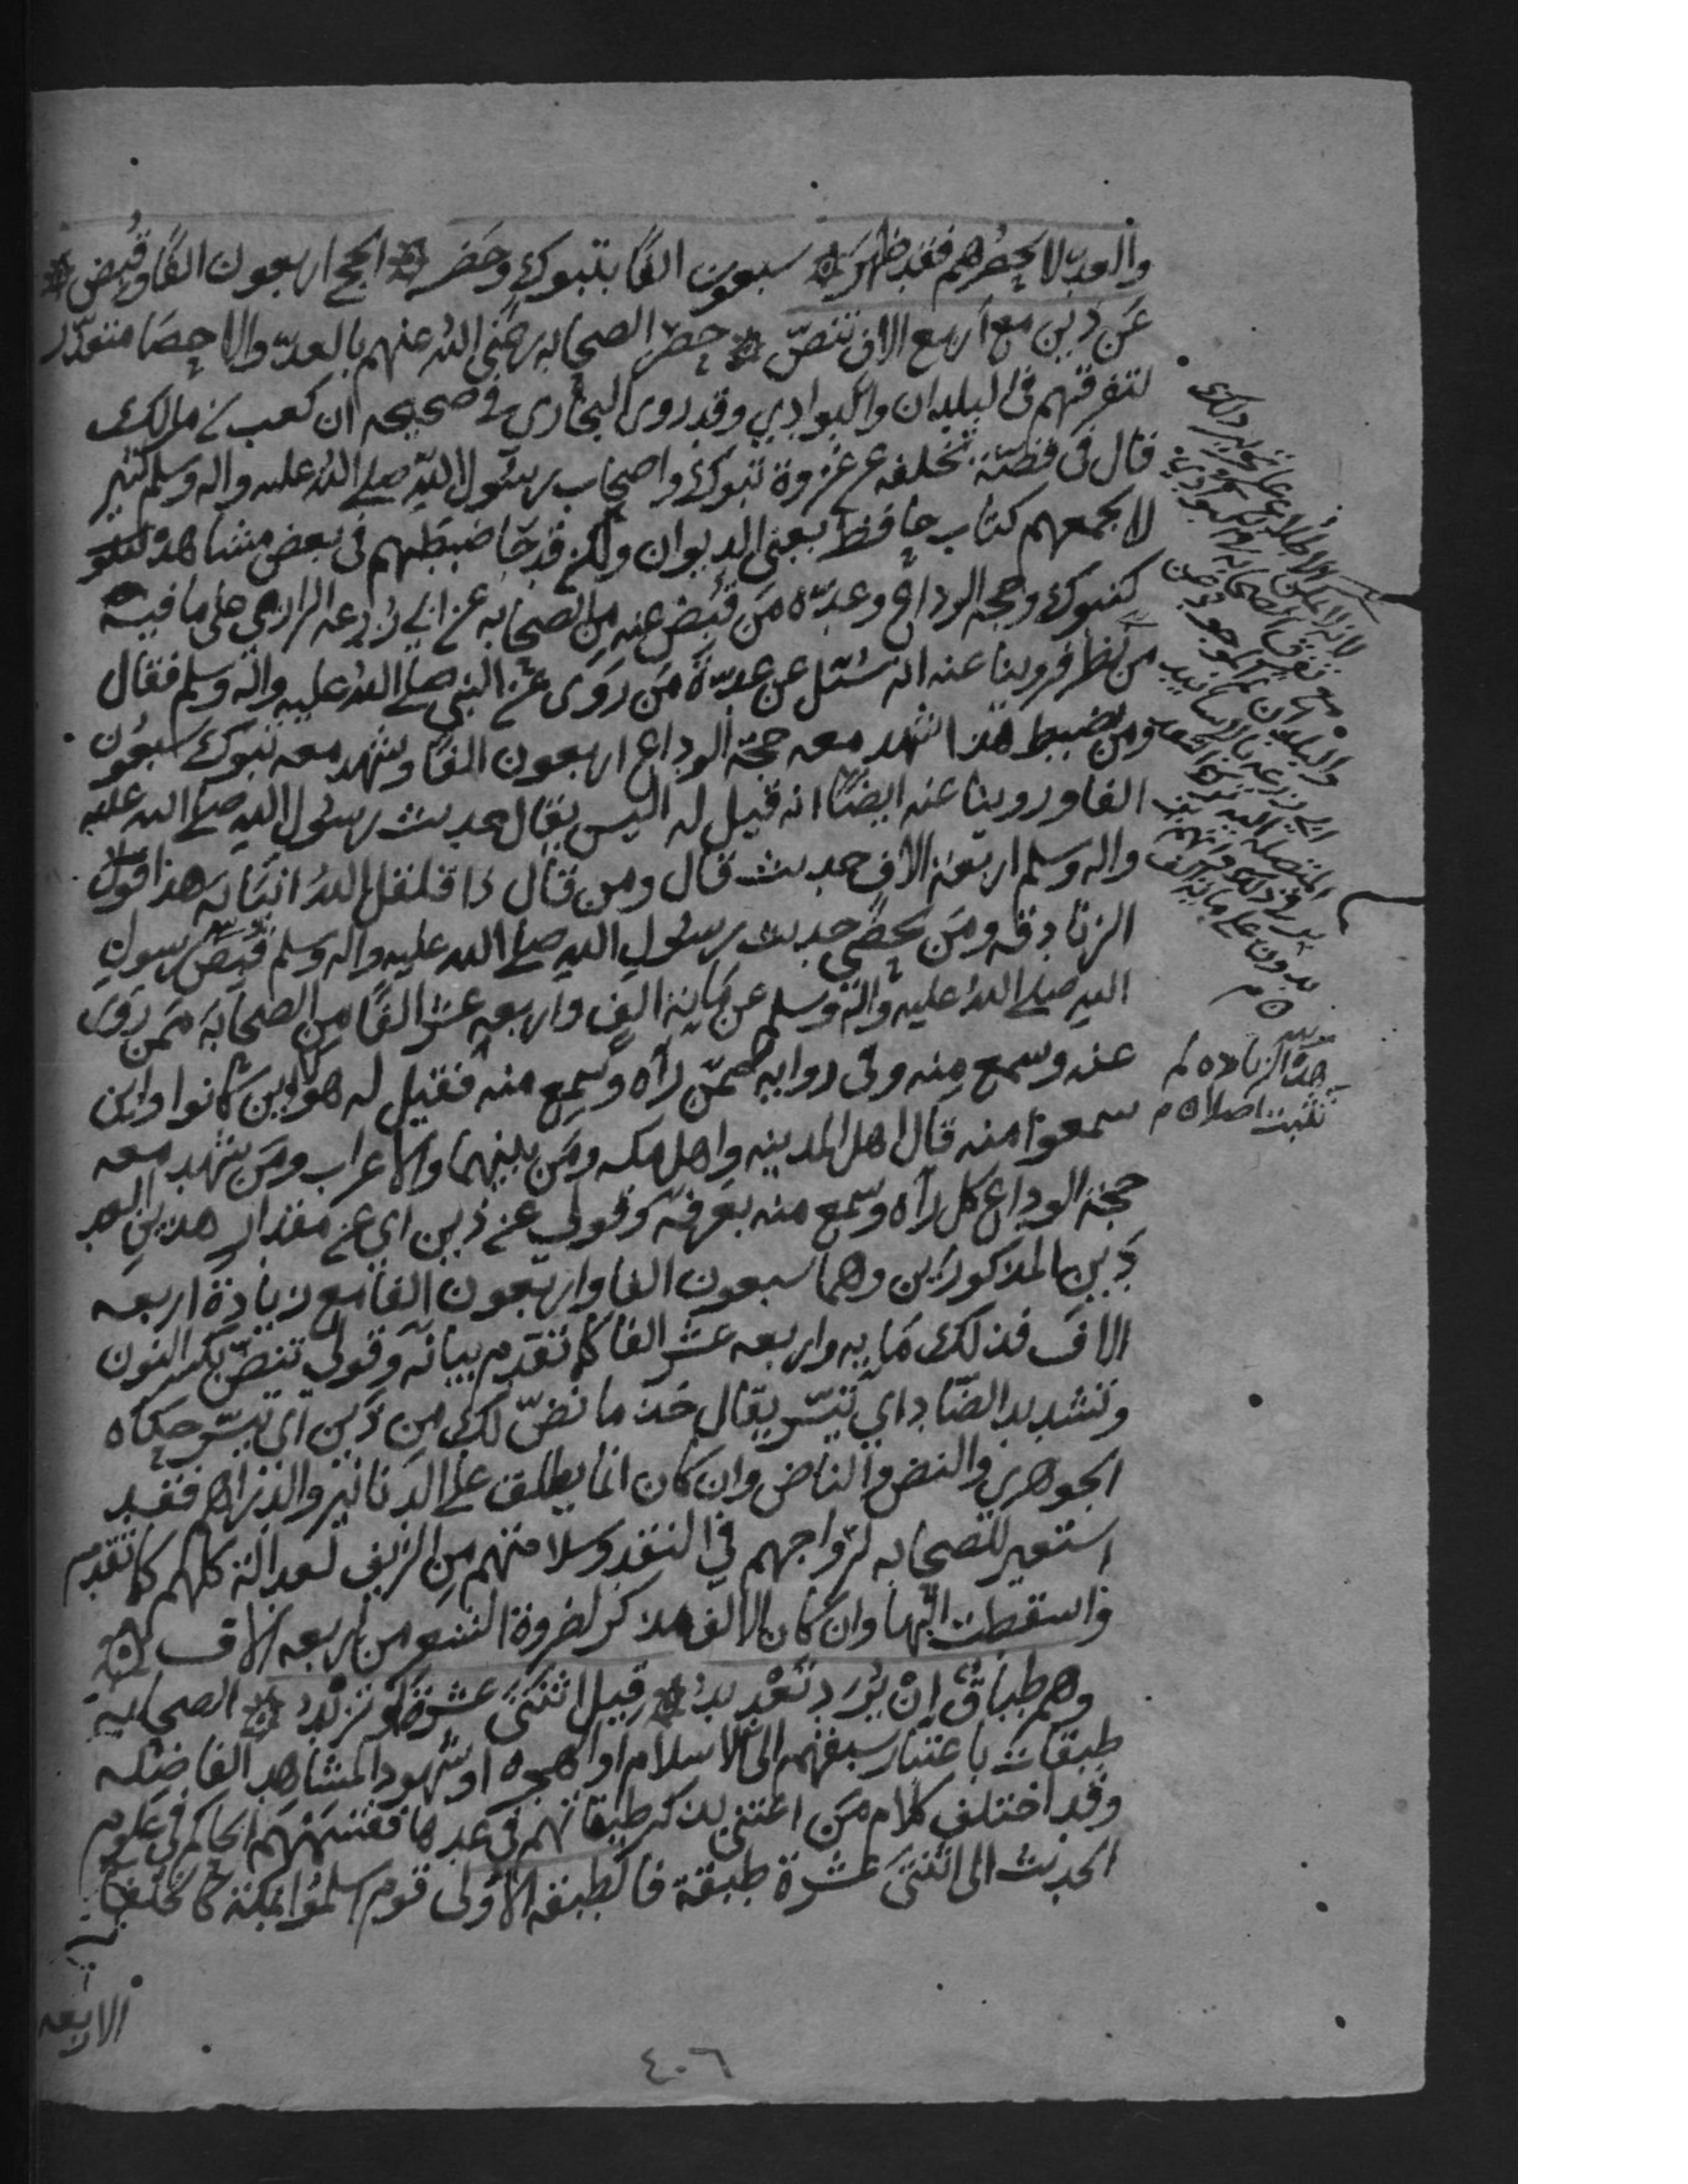 والعد لا يحصرهم فقد ظهر ۞ سبعون الفا بتبوك وحضر ۞ الحج اربعون الفا وقبض ۞
عن ذين مع اربع الاف تنضّ ۞ حصر الصحابه رضي الله عنهم بالعد والاحصا متعذر
لتفرقهم في البلدان والبوادي وقد روى البخاري في صحيحه ان كعب بن مالك
قال في قصة تخلفه عن غزوة تبوك واصحاب رسول الله صلى الله عليه واله وسلم كثير
لا يجمعهم كتاب حافظ يعني الديوان ولكن قد جا ضبطهم في بعض مشاهده
كتبوك وحجة الوداع وعدّة من قبض عنه من الصحابه عن ابي زرعه الرازي على ما فيه
من نظر فروينا عنه انه سئل عن عدّة من روى عن النبي صلى الله عليه واله وسلم فقال
ومن يضبط هذا شهد معه حجة الوداع اربعون الفا وشهد معه تبوك سبعون
الفا وروينا عنه ايضا انه قيل له اليس يقال حديث رسول الله صلى الله عليه
واله وسلم اربعة الاف حديث قال ومن قال ذا قلقل الله انيابه هذا قول
الزنادقه ومن يحصي حديث رسول الله صلى الله عليه واله وسلم قبض رسول
الله صلى الله عليه واله وسلم عن مائة الف واربعه عشر الفا من الصحابة ممن روى
عنه وسمع منه وفي روايه ممّن رآه وسمع منه فقيل له هؤلا اين كانوا واين
سمعوا منه قال اهل المدينه واهل مكه ومن بينهما والاعراب ومن شهد معه
حجة الوداع كل رآه وسمع منه بعرفه وقولي عن ذين اي عن مقدار هذين العد
دين المذكورين وهما سبعون الفا واربعون الفا مع زيادة اربعه
الاف فذلك مايه واربعه عشر الفا كما تقدم بيانه وقولي تنضّ بكسر النون
وتشديد الضاد اي تيسّر يقال خذ ما نضّ لك من دين اي تيسّر حكاه
الجوهري والنض والناض وان كان انما يطلق على الدنانير والدراهم فقد
استعير للصحابه لرواجهم في النقد وسلامتهم من الزيف لعدالة كلهم كما تقدم
واسقطت الها وان كان الالف مذكر لضروة الشعر من اربعه الاف ۞
وهم طباق إن يرد تعديد ۞ قيل اثنتي عشرة او تزيد ۞ الصحابه
طبقات باعتبار سبقهم الى الاسلام او الهجره او شهود المشاهد الفاضله
وقد اختلف كلام من اعتنى بذكر طبقاتهم في عدها فقسمهم الحاكم في علوم
الحديث الى اثنتي عشرة طبقة فالطبقه الاولى قوم اسلموا بمكة كالخلفا
الاربعه
مع تفرق الصحابه
والبلدان
ابي زرعه بالاسانيد
المتصلة اليه
هذه الزياده لم
تثبت اصلا ه م
٤٠٦